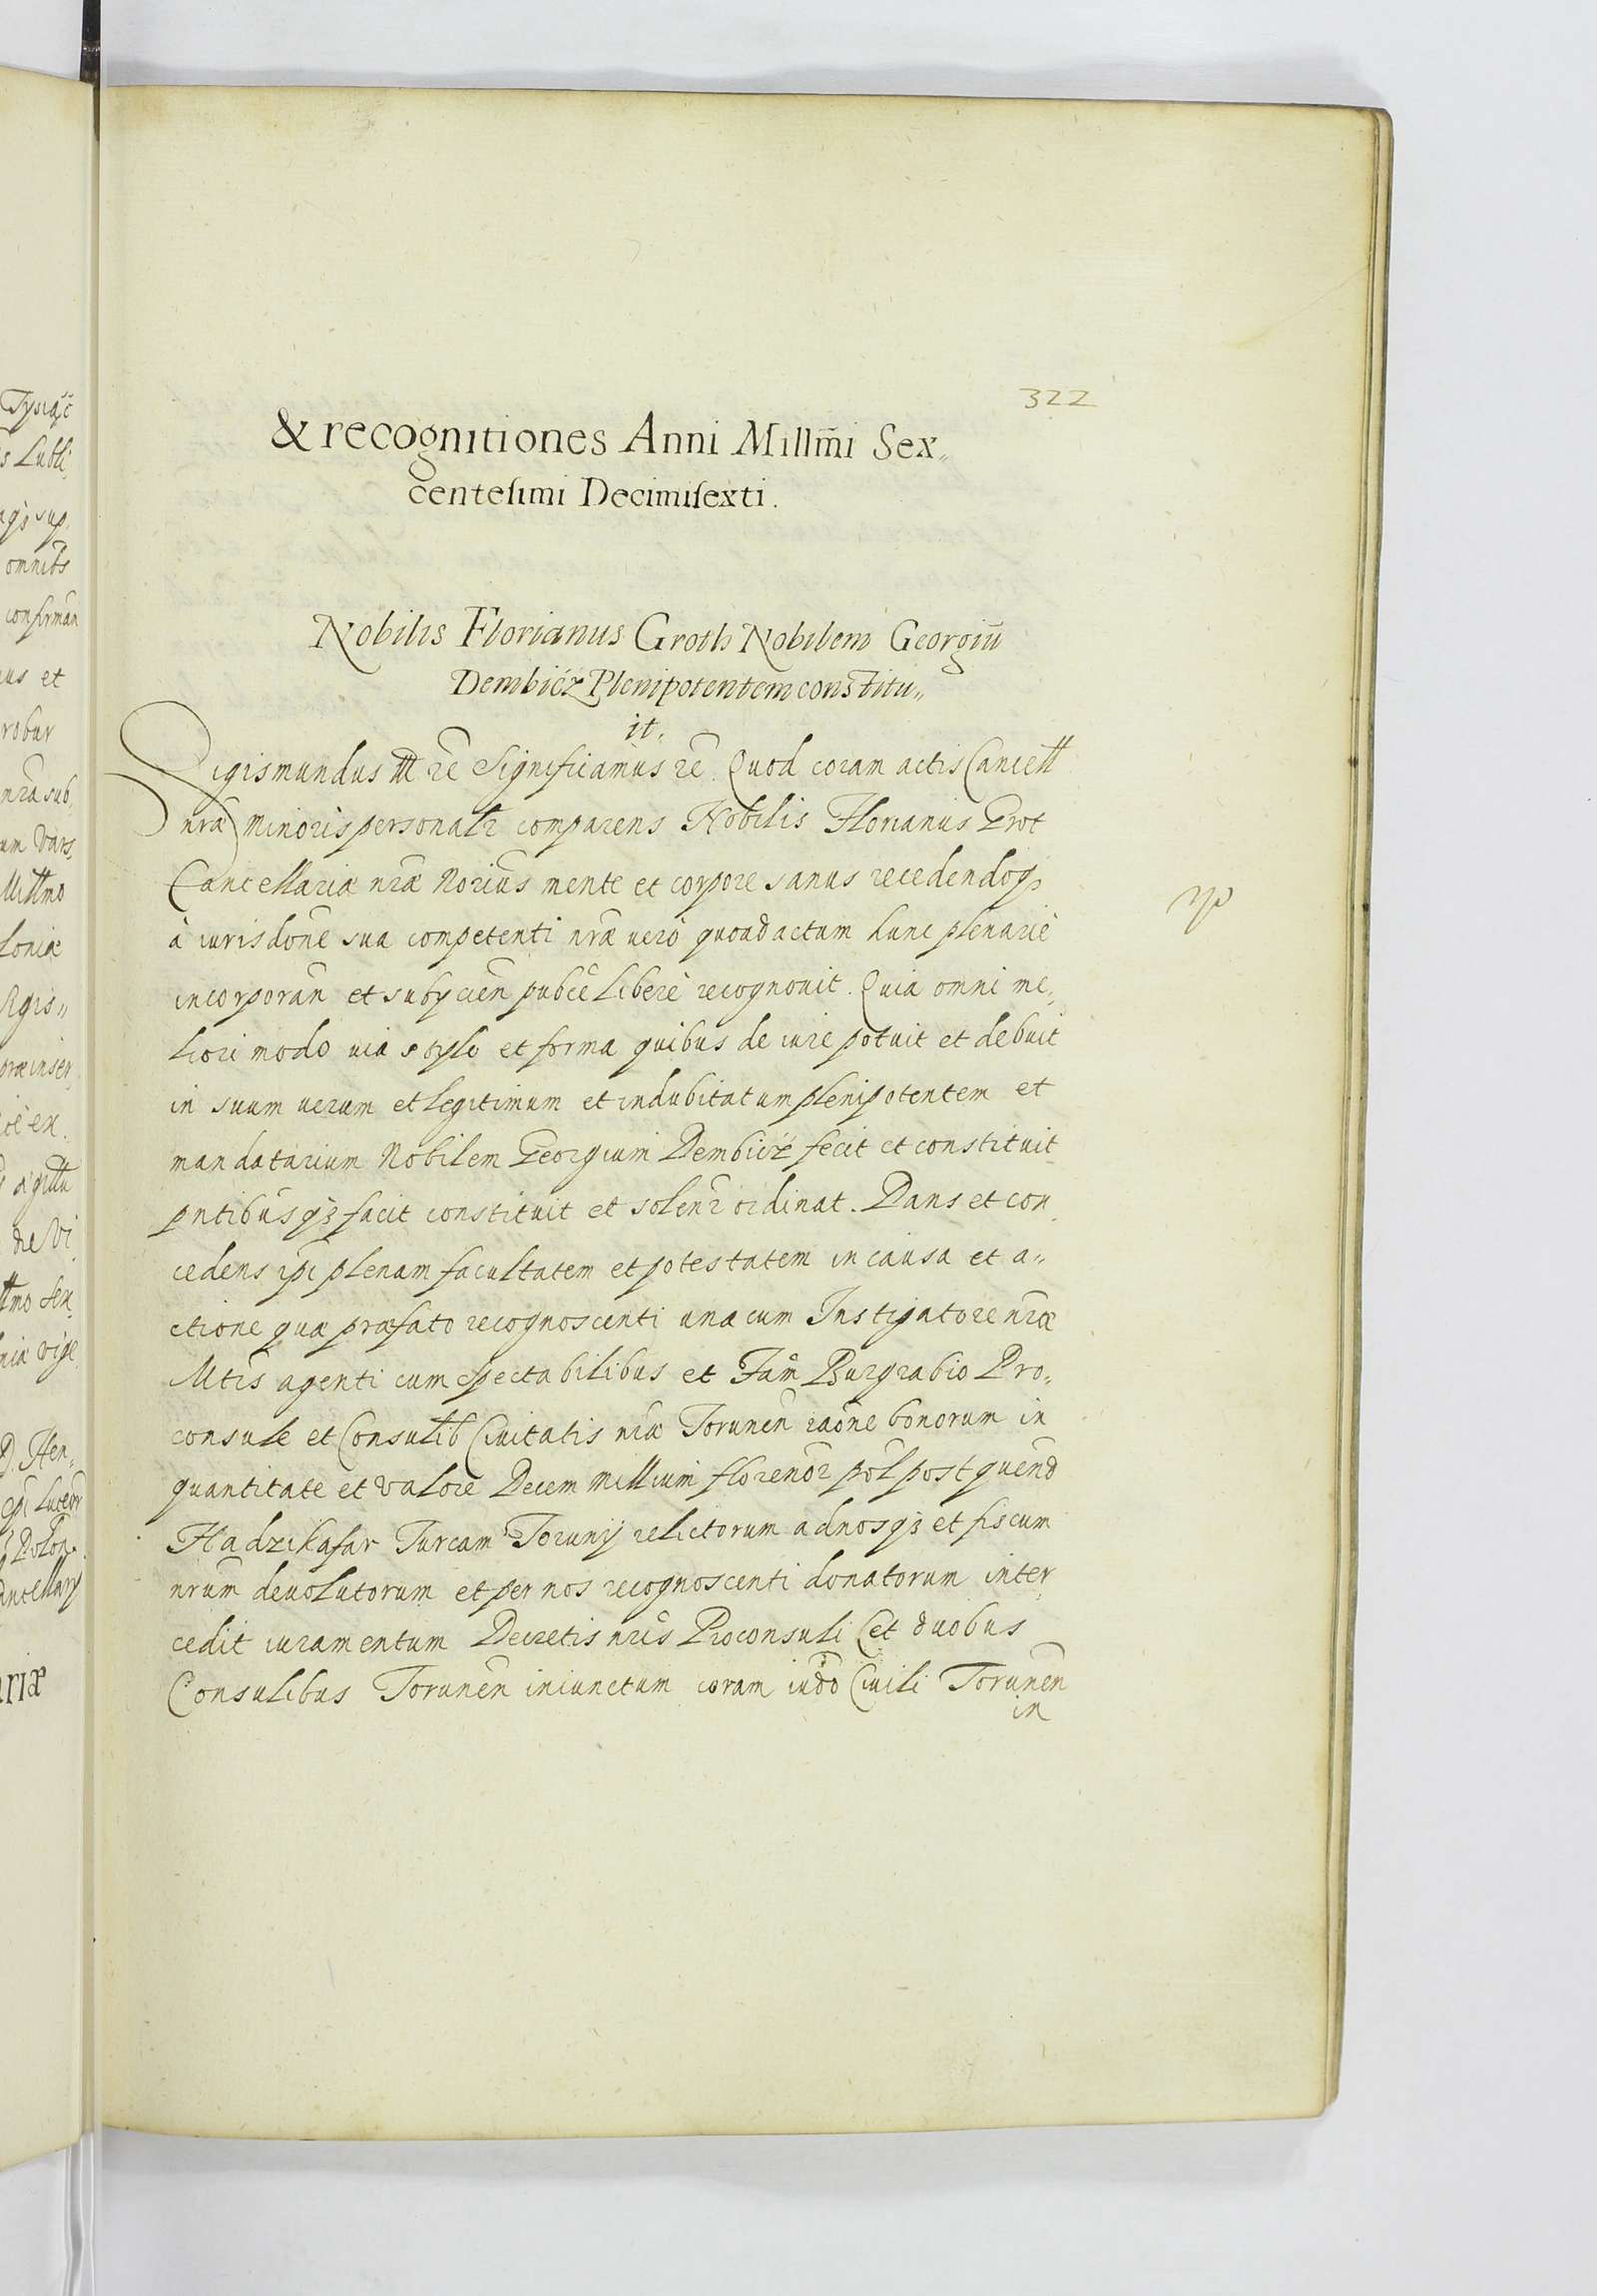 322
& recognitiones Anni Millm̃i Sex„
centesimi Decimisexti.
Nobilis Florianus Groth Nobilem Georgiũ
Dembicz Plenipotentem constitu„
it.
Sigismundus III rē Significamus rē. Quod coram actis Cancell
nrã Minoris personalr comparens Nobilis Florianus Grot
Cancellariæ nræ Norius mente et corpore sanus recedendoq3
à iurisdone sua competenti nræ uero quoad actum hunc plenarie
incorporañ et subycieñ pubce libere recognouit. Quia omni me„
liori modo uia stylo et forma quibus de iure potuit et debuit
in suum uerum et legitimum et indubitatum plenipotentem et
mandatarium Nobilem Georgium Dembicz fecit et constituit
pntibusq3 facit constituit et solenr ordinat. Dans et con„
cedens ipi plenam facultatem et potestatem in causa et a„
ctione quæ præfato recognoscenti una cum Instigatore nræ
Mtis agenti cum Spectabilibus et Fam̃ Burgrabio Pro„
consule et Consulib Ciuitatis nræ Toruneñ raone bonorum in
quantitate et valore Decem Millium florenor pol post quend
Hadzikafar Turcam Torunij relictorum ad nosq3 et fiscum
nrum deuolutorum et per nos recognoscenti donatorum inter„
cedit iuramentum Decretis nris Proconsuli et duobus
Consulibus Toruneñ iniunctum coram iudo Ciuili Toruneñ
in